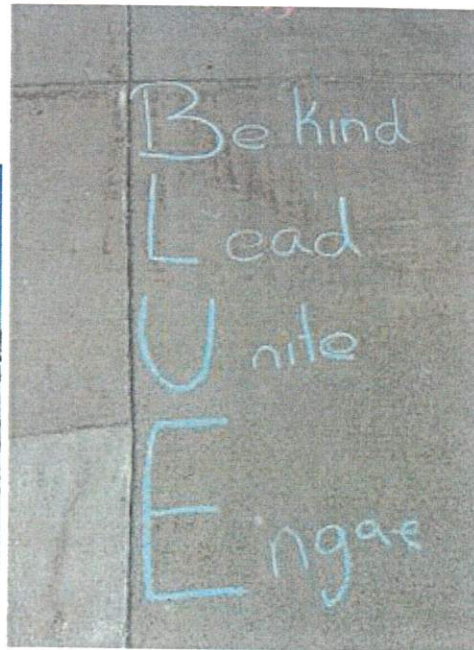 Be Kind
Lead
Unite
Engae